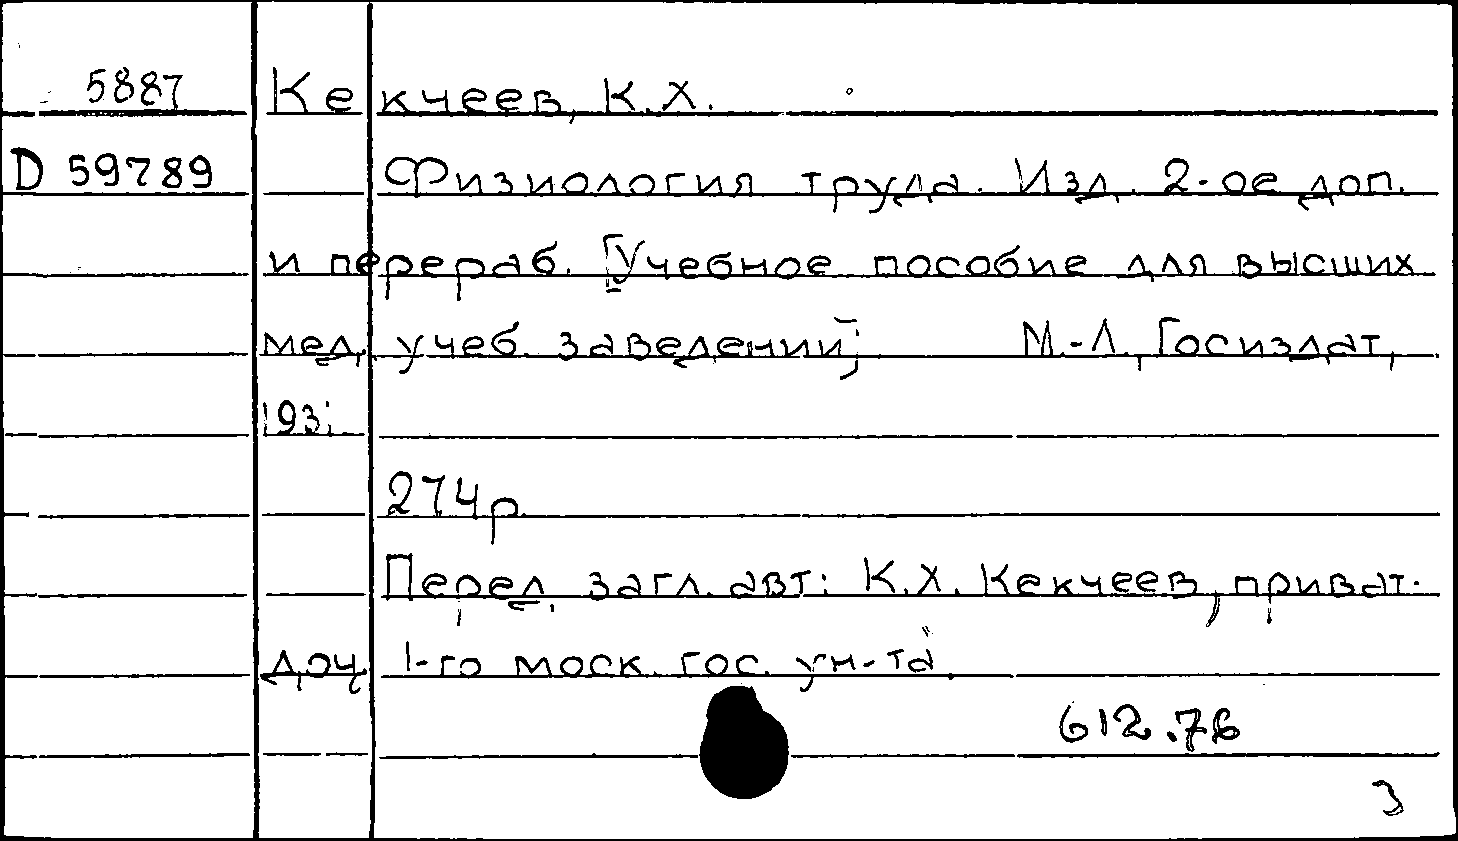 5887 Кекчеев, К.Х.
D 59789 Физиология труда. Изд. 2-ое доп.
и перераб. [Учебное пособие для высших
мед. учеб. заведений] М.-Л., Госиздат,
193
274р.
Перед. загл. авт: К.Х. Кекчеев, приват-
доц. 1-го моск. гос. ун-та.
612.76
3